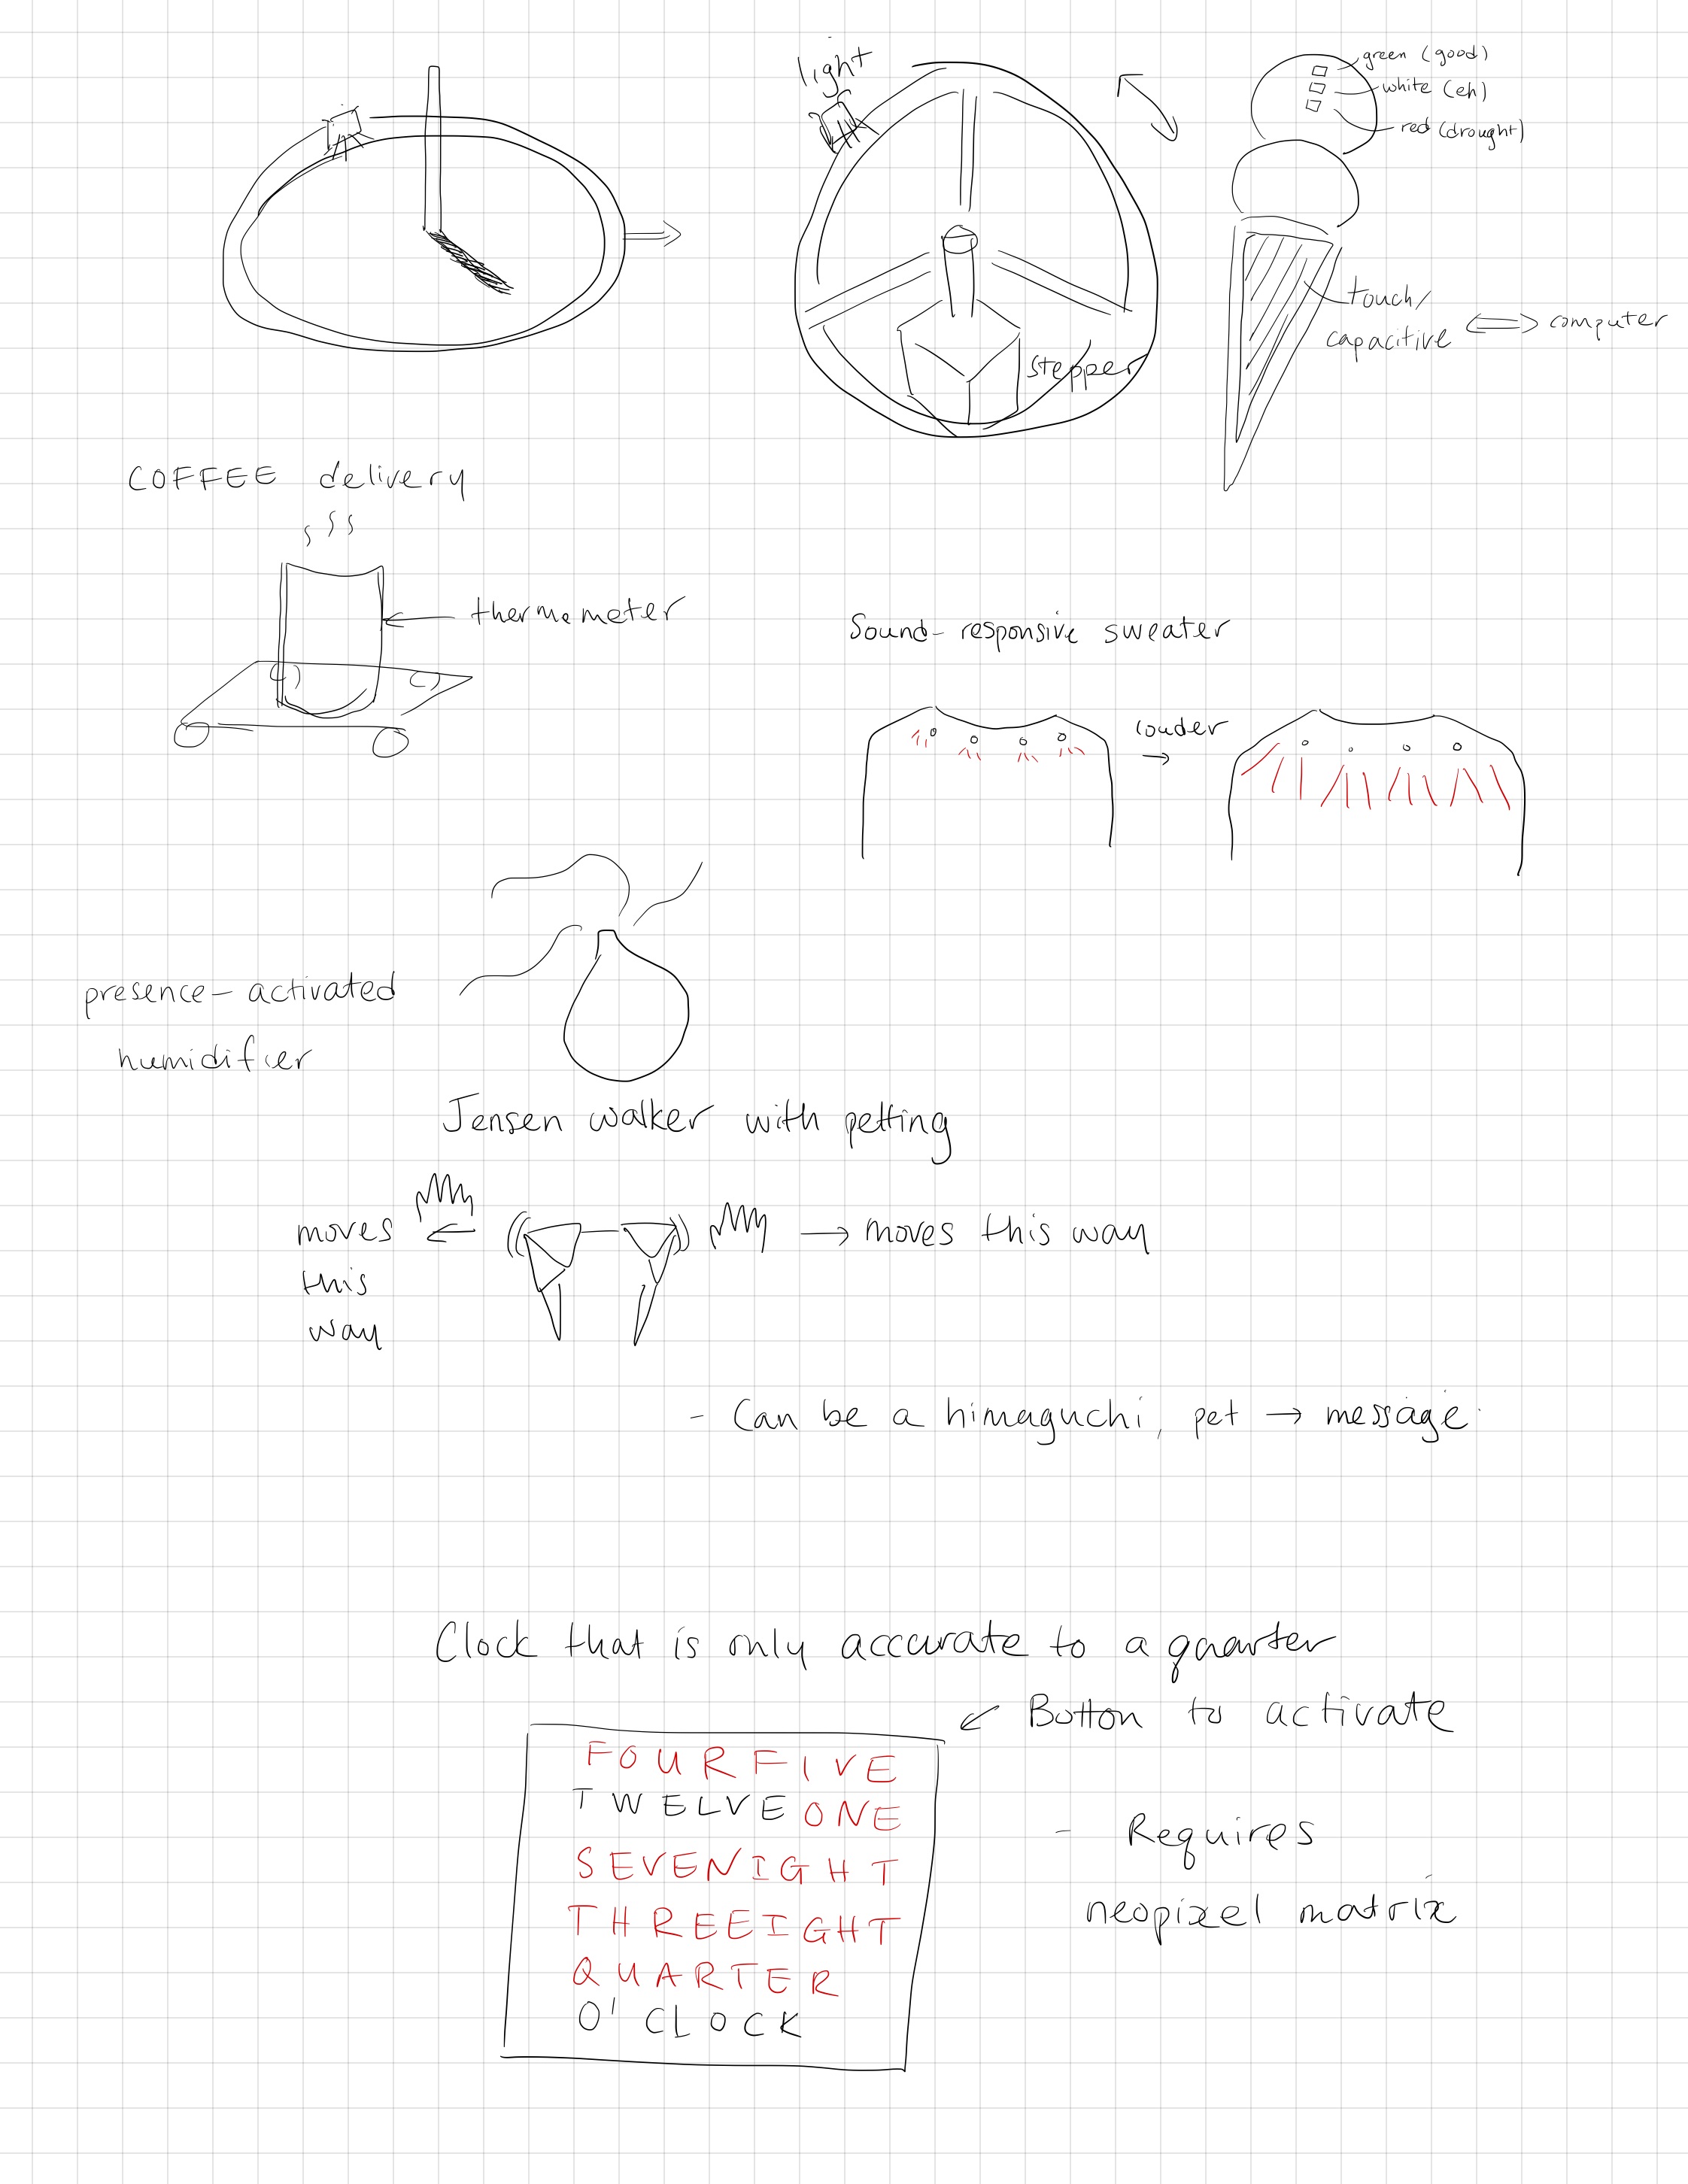 light
green (good)
white (eh)
red (drought)
touch/
capacitive
computer
stepper
COFFEE delivery
thermometer
Sound-responsive sweater
louder
presence-activated
humidifier
Jensen walker with petting
moves
this
way
moves this way
- Can be a himaguchi, pet → message
Clock that is only accurate to a quarter
Button to activate
FOURFIVE
TWELVEONE
SEVENIGHT
THREEIGHT
QUARTER
O'CLOCK
- Requires
neopixel matrix